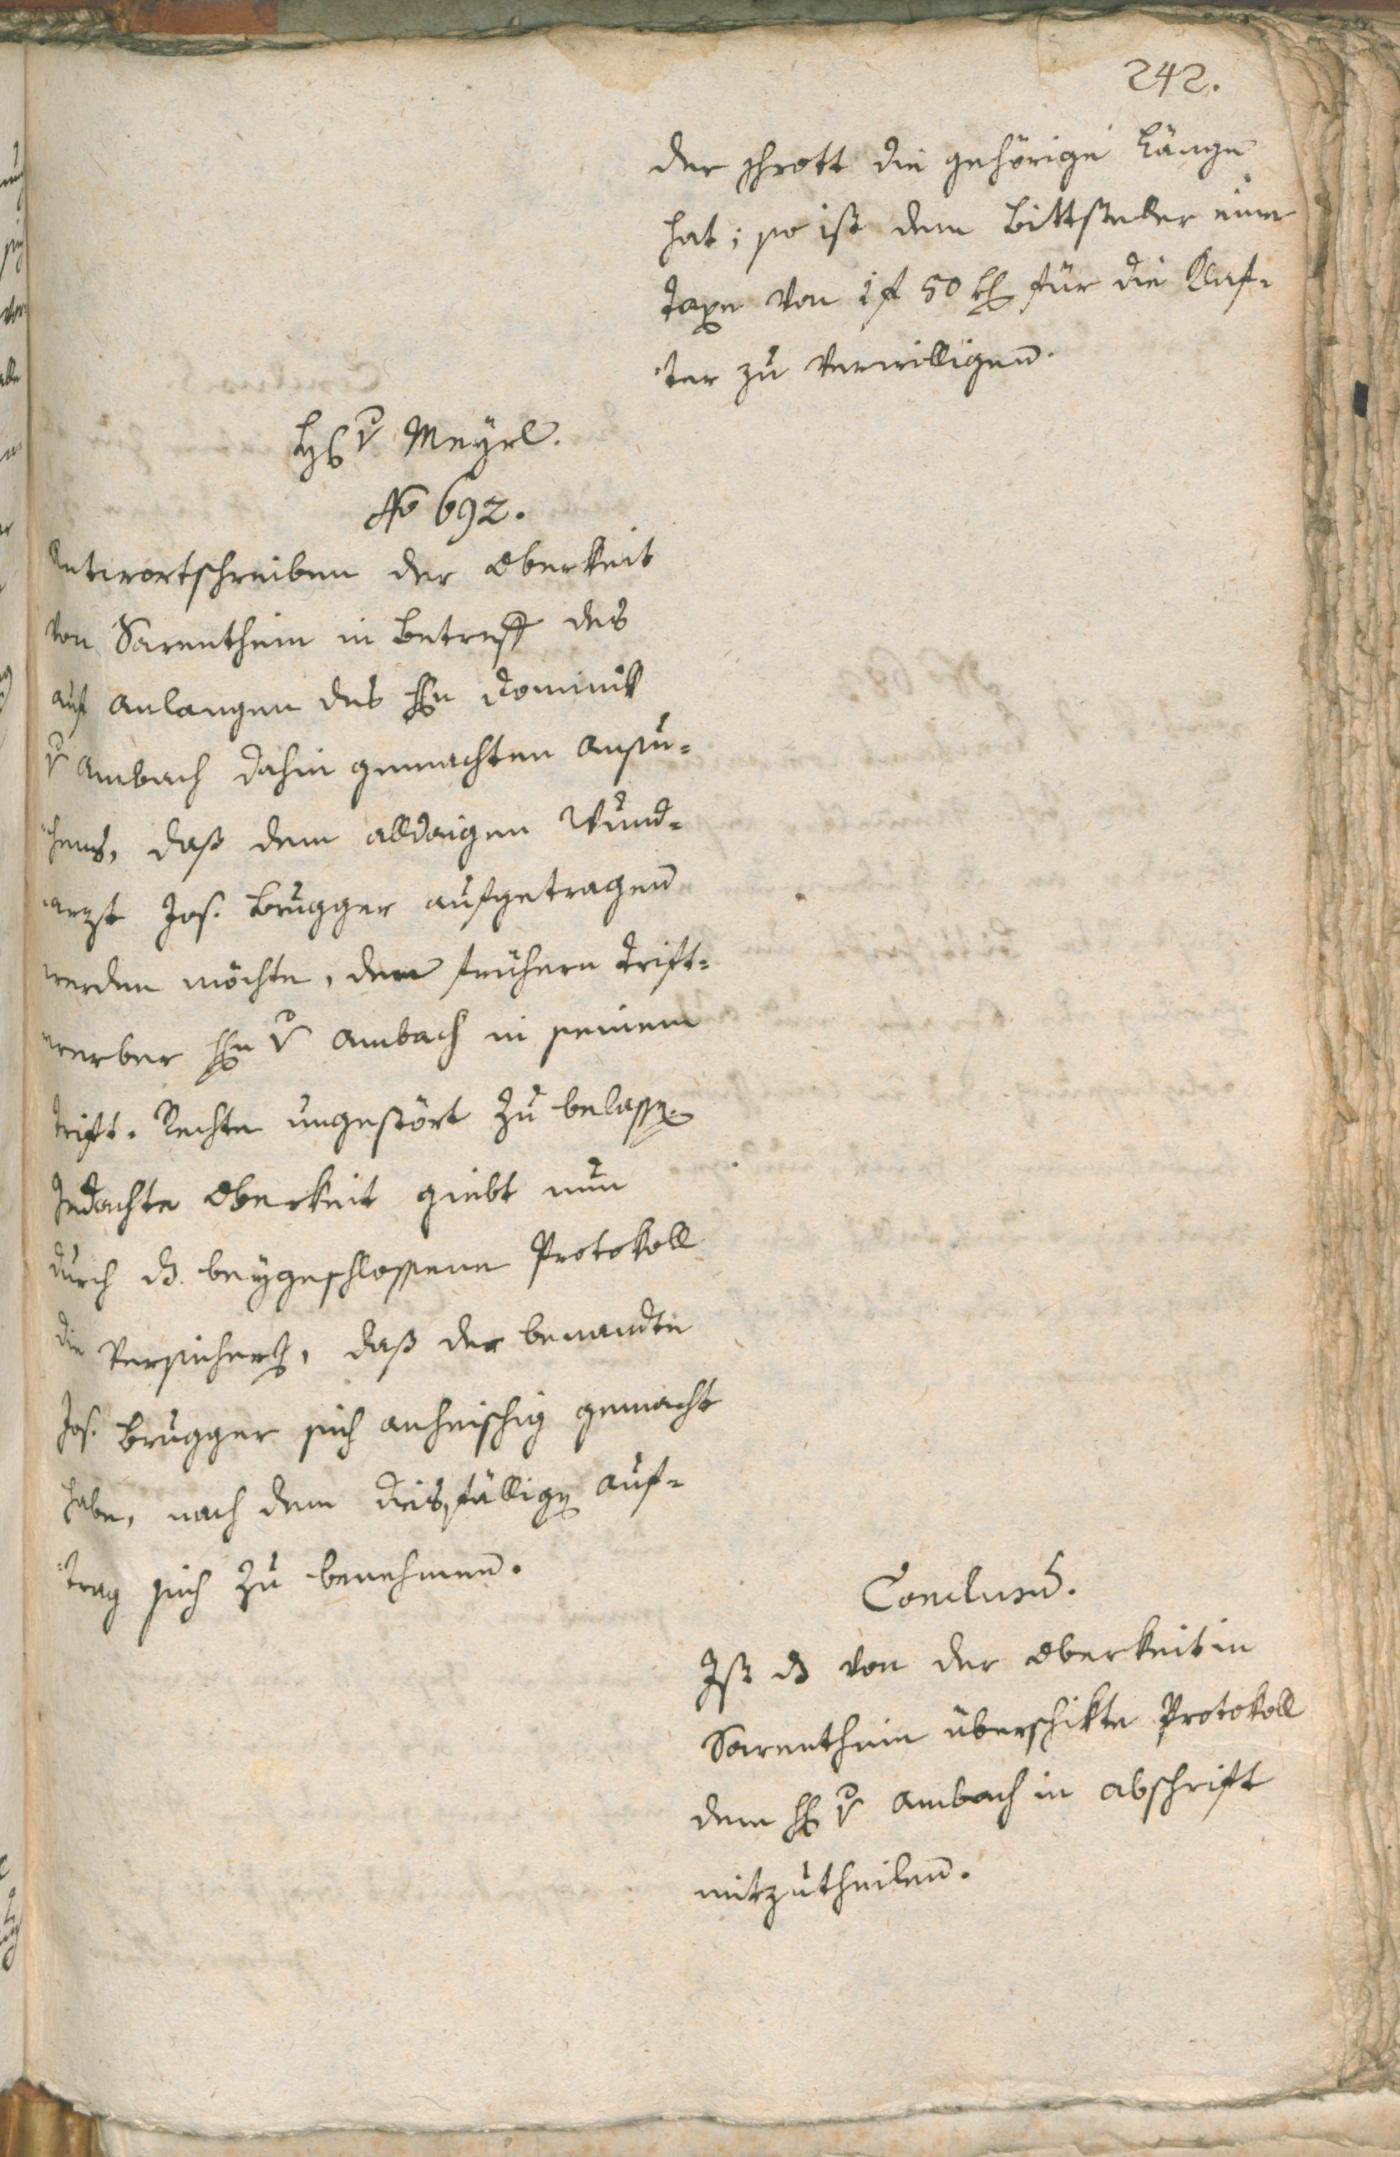 242.
der schrott die gehörige Länge
hat; so ist dem Bittsteller eine
Taxe von 1 f 50 kr für die Klaf-
ter zu verwilligen.
Hr v Meyrl.
No 692.
Antwortschreiben der Oberkeit
von Sarenthein in Betreff des
auf Anlangen des Hrn Dominik
v Ambach dahin gemachten Ansu-
chens, daß dem alldaigen Wund-
arzt Jos. Brugger aufgetragen
werden möchte, dem frühern Trift-
werber Hrn v Ambach in seinem
Trift-Rechte ungestört zu belassen.
Gedachte Oberkeit giebt nun
durch das beygeschlossene Protokoll
die Versicherg, daß der benandte
Jos. Brugger sich anheischig gemacht
habe, nach dem diesfälligen Auf-
trag sich zu benehmen.
Conclusum.
Ist das von der Oberkeit in
Sarenthein überschikte Protokoll
dem Hr v Ambach in Abschrift
mitzutheilen.